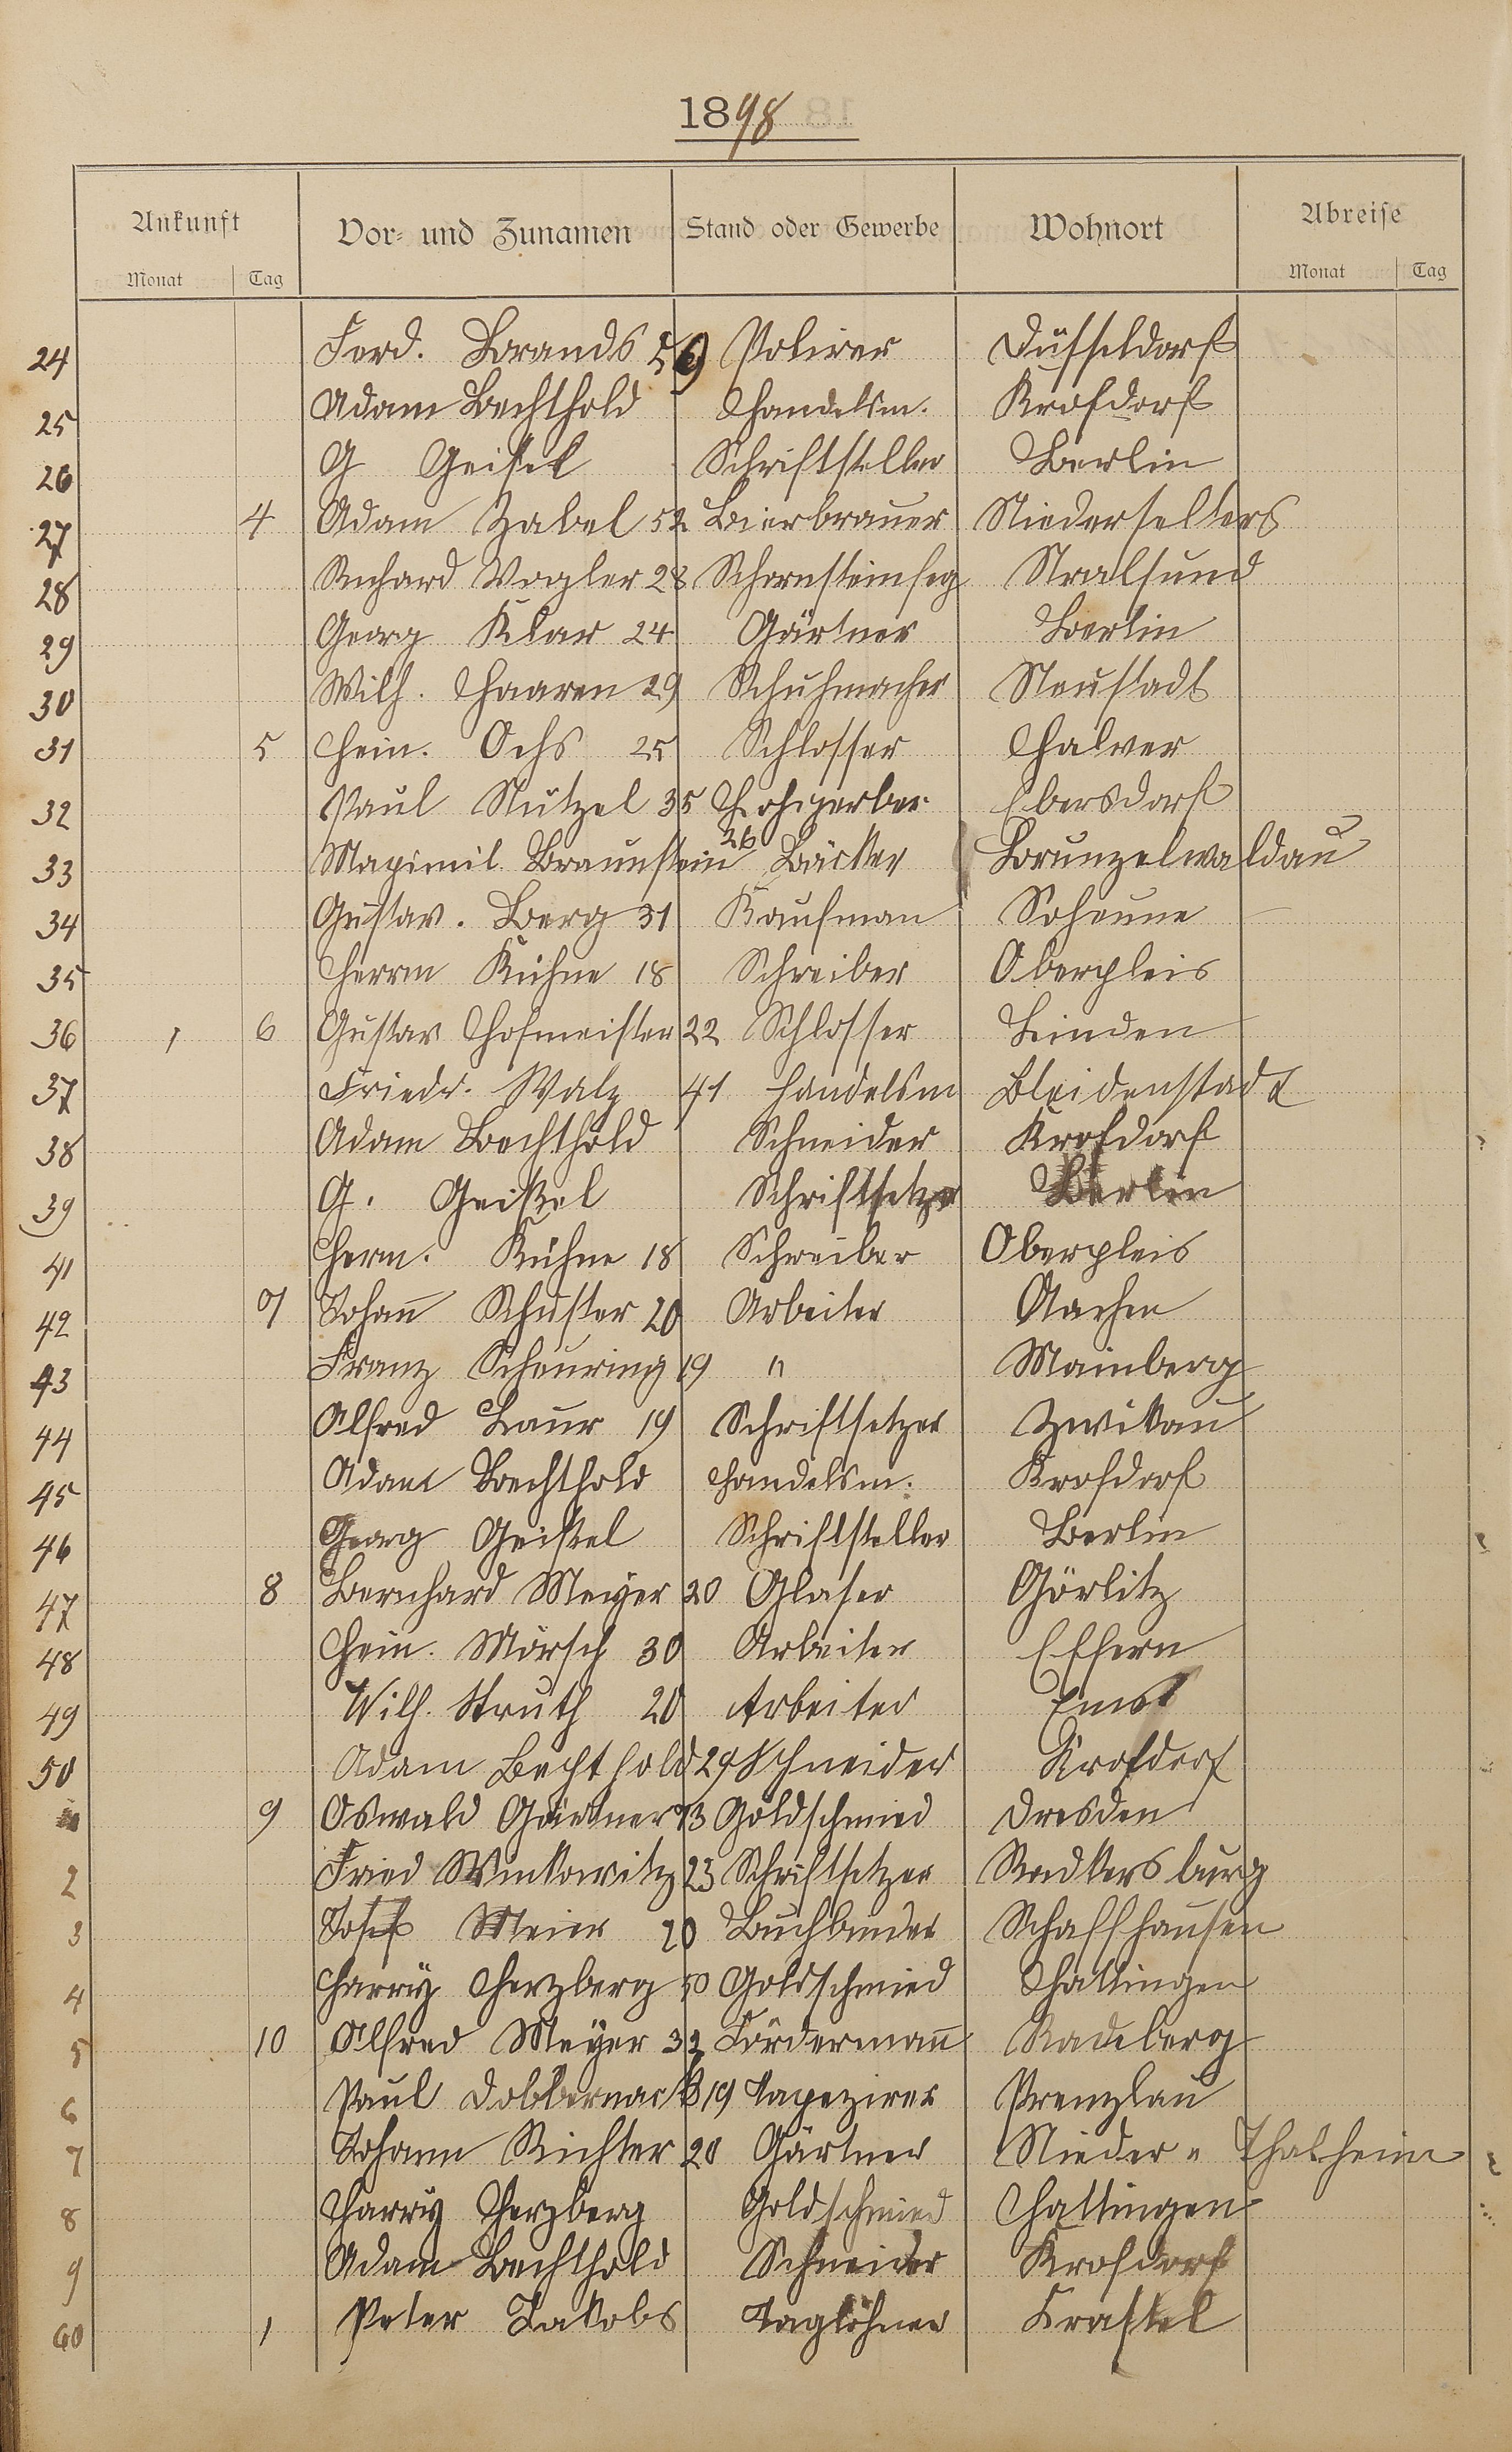 1898
Ankunft Vor- und Zunamen Stand oder Gewerbe Wohnort Abreise
Monat Tag Monat Tag
24 Ferd. Brands 56 Polirer Düsseldorf
25 Adam Bechthold Handelsm. Krofdorf
26 G Geisel Schriftsteller Berlin
27 4 Adam Zabel 52 Bierbrauer Niederselters
28 Richard Vogler 28 Schornsteinfeg Stralsund
29 Georg Klar 24 Gärtner Berlin
30 Wilh. Haaren 29 Schuhmacher Neustadt
31 5 Hein. Ochs 25 Schlosser Halver
32 Paul Nützel 35 Lohgerber Ebersdorf
33 Maximil Braunstein 26 Bäcker Brunzelwaldau
34 Gustav. Berg 31 Kaufman Soheune
35 Herrm Kühne 18 Schreiber Oberpleis
36 1 6 Gustav Hofmeister 22 Schlosser Linden
37 Friedr. Walz 41 Handelsm Bleidenstadt
38 Adam Bechthold Schneider Krofdorf
39 G. Geisel Schriftsetzer Berlin
41 Herm. Kühne 18 Schreiber Oberpleis
42 7 Johañ Schuster 20 Arbeiter Aachen
43 Franz Scheuring 19 " Mainberg
44 Alfred Laur 19 Schriftsetzer Zwikau
45 Adam Bechthold Handelsm. Krofdorf
46 Georg Geisel Schriftsteller Berlin
47 8 Bernhard Meyer 20 Glaser Görlitz
48 Hein. Mörsch 30 Arbeiter Effern
49 Wilh. Struth 20 Arbeiter Ems
50 Adam Bechthold 29 Schneider Krofdorf
9 Oswald Gärtner 73 Goldschmied Dresden
2 Fried Winkowitz 23 Schriftsetzer Radkersburg
3 Josef Meier 20 Buchbinder Schaffhausen
4 Harry Herzberg 50 Goldschmied Hattingen
5 10 Alfred Meyer 32 Fördermañ Radeberg
6 Paul Dobbernack 19 Tapezirer Prenzlau
7 Johann Richter 20 Gärtner Nieder = Thalheim
8 Harry Herzberg Goldschmied Hattingen
9 Adam Bechthold Schneider Krofdorf
60 1 Peter Jakobs Taglöhner Krastel